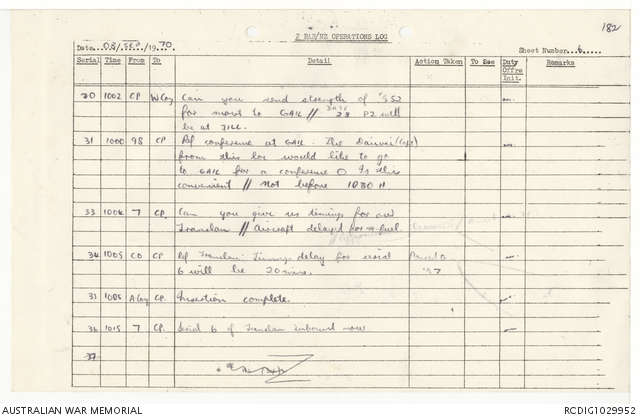 182
2 RAR/NZ OPERATIONS LOG
Date 08/SEP/1970. Sheet Number 6
Serial Time From To Detail Action Taken To See Duty Offrs Init. Remarks
30 1002 CP W Coy Can you send strength of
for move to GAIL // 28 P2 will
be at JILL.
31 1000 98 CP Ref conference at GAIL. The
from this loc would like to go
to GAIL for a conference O Is this
convenient // Not before 1030 H
33 1004 7 CP. Can you give us timings for our
Translan // Aircraft delayed for fuel.
34 1005 CO CP Ref Translan. Timings delay for serial
6 will be 20 mins.
1005 A Coy CP. Insertion complete.
36 1015 7 CP. Serial 6 of Translan inbound now
37
AUSTRALIAN WAR MEMORIAL
RCDIG1029952